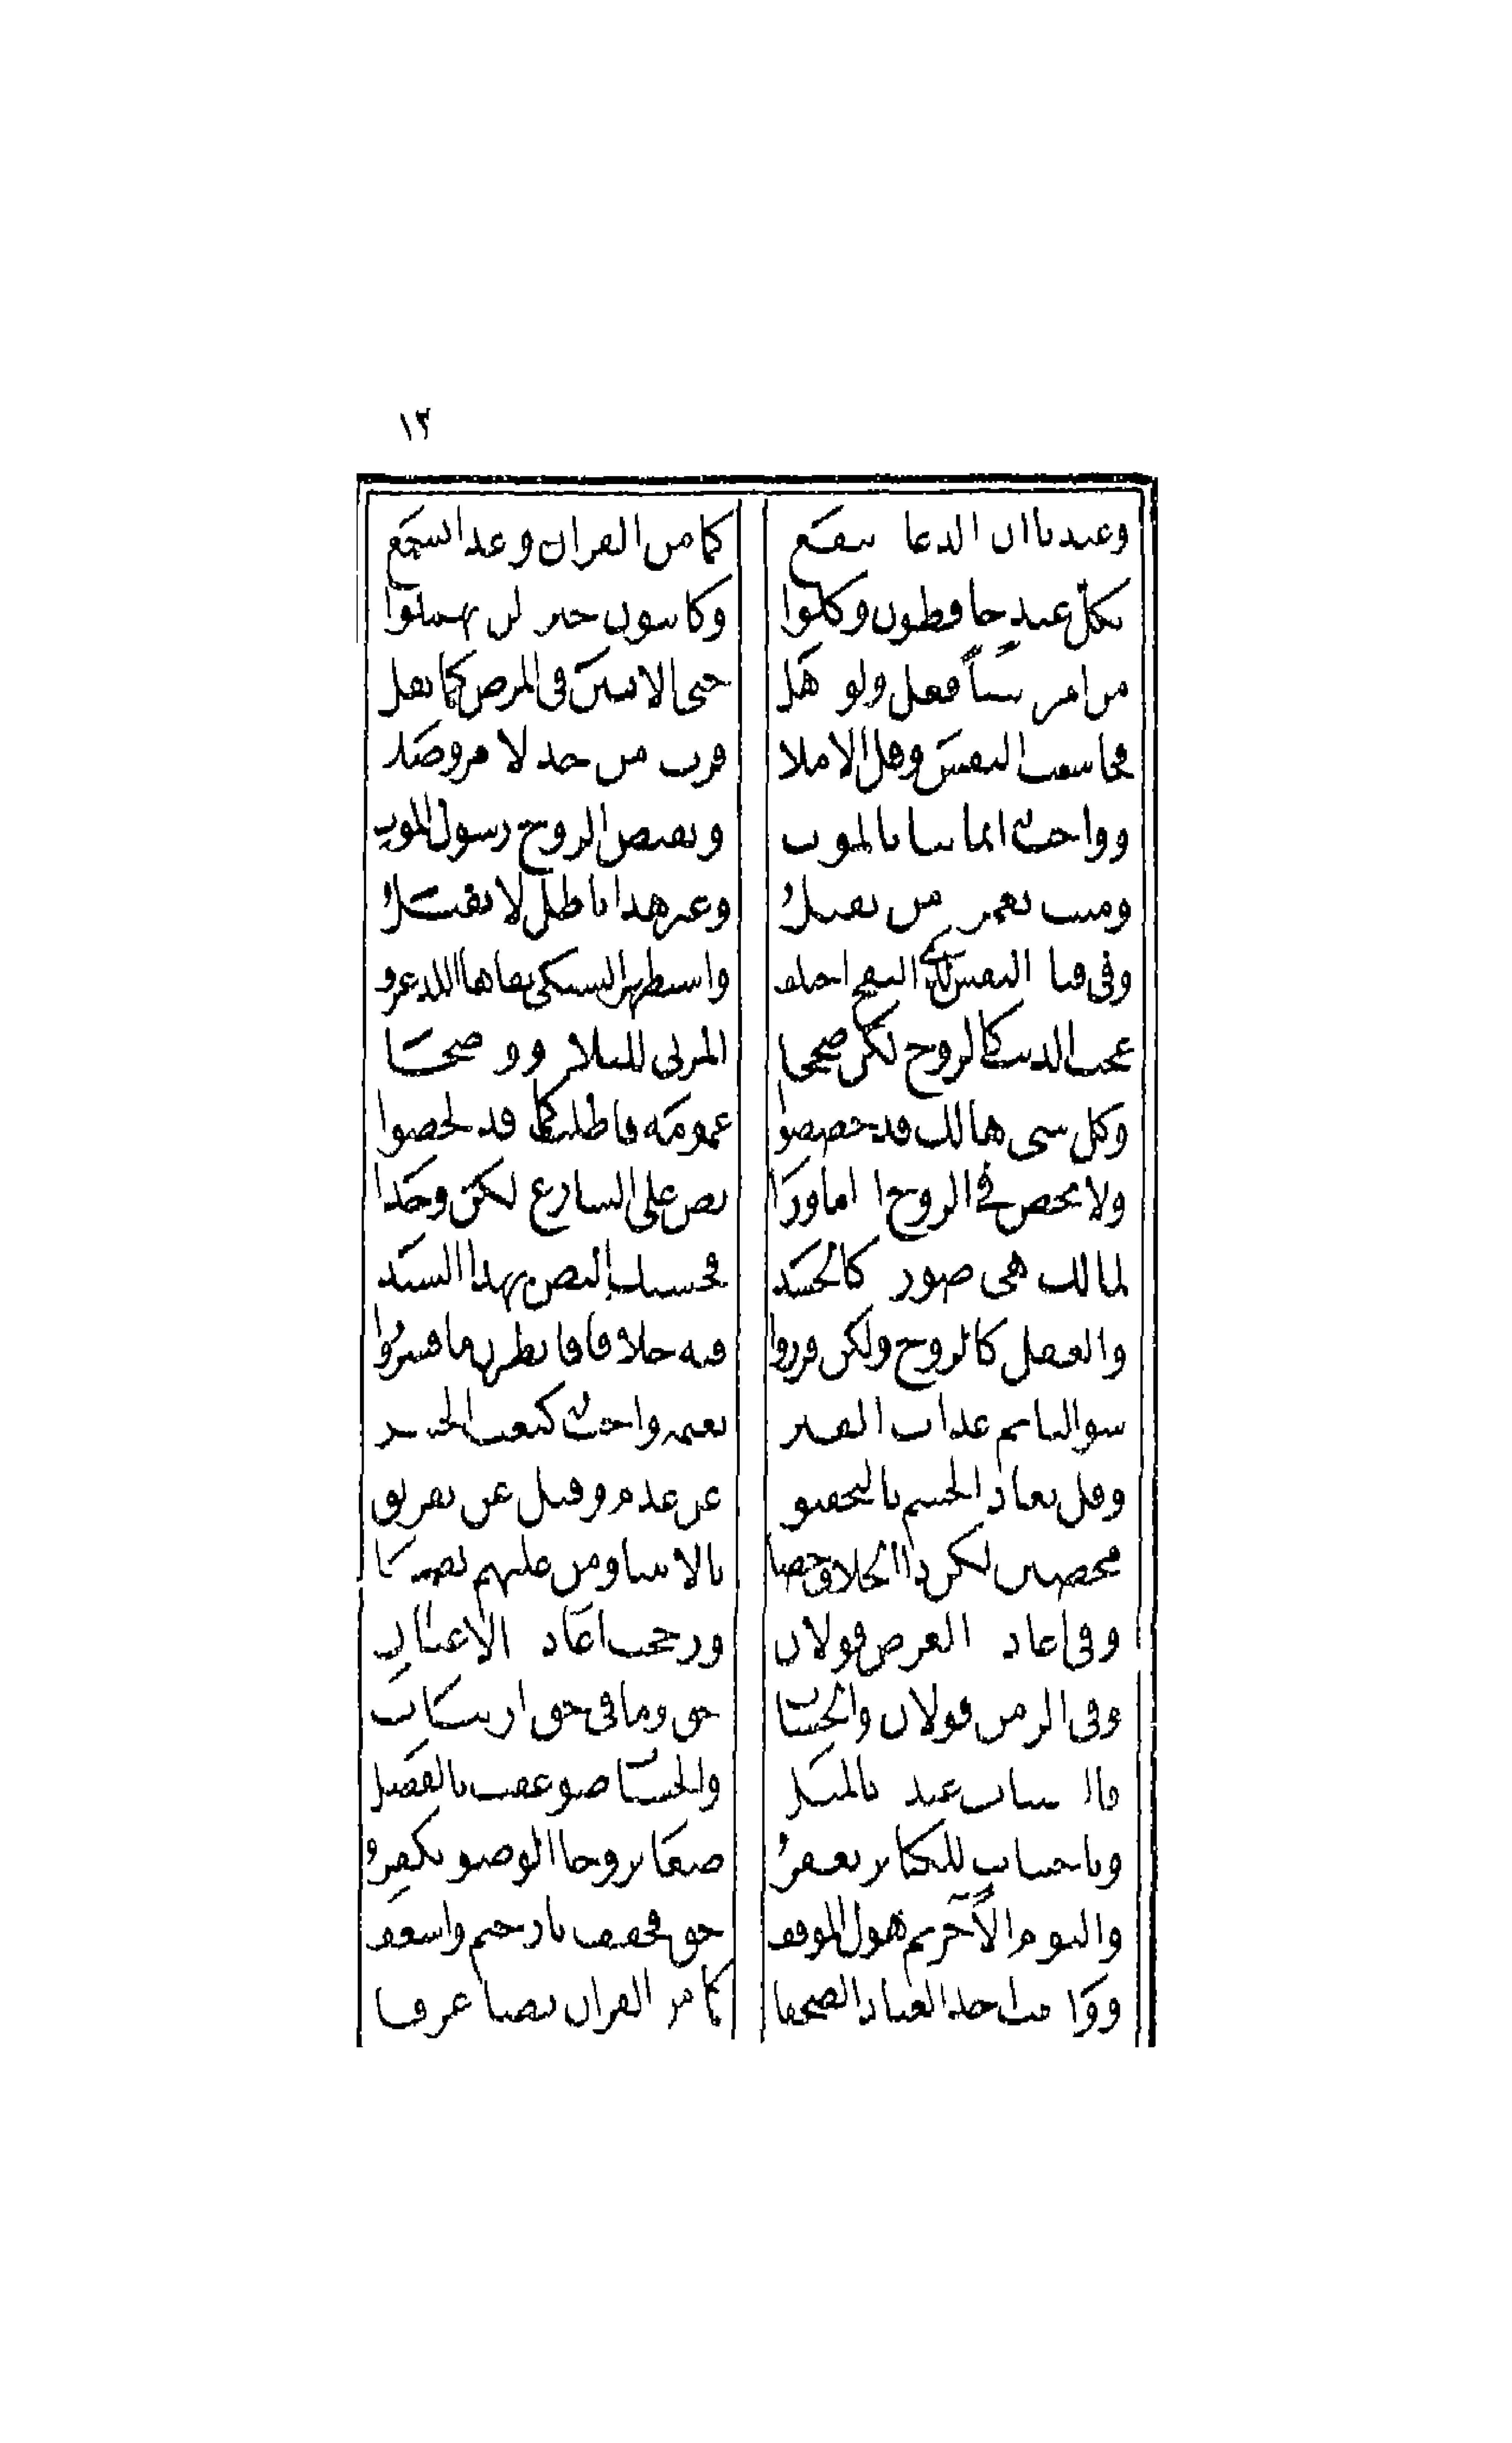 ١٣
وعندنا ان الدعا ينفع كما من القران وعدا يسمع
بكل عبد حافظون وكلوا وكاتبون خيرة لن يهملوا
من امره شيئا فعل ولو ذهل حتى الانين فى المرض كما نقل
فحاسب النفس وقلل الاملا فرب من جد لامر وصلا
وواجب ايماننا بالموت ويقبض الروح رسول الموت
وميت بعمره من يقتل وغير هذا باطل لا يقبل
وفى فنا النفس لدى النفخ اختلف واستظهر السبكى بقاها اللذ عرف
عجب الذنب كالروح لكن صححا المزنى للبلا ووضحا
وكل شى هالك قد خصصوا عمومه فاطلب لما قد لخصوا
ولا تخض فى الروح اذ ما وردا نص على الشارع لكن وجدا
لمالك هى صورة كالجسد فحسبك النص بهذا السند
والعقل كالروح ولكن قرروا فيه خلافا فانظرن ما فسروا
سوالنا ثم عذاب القبر نعيمه واجب كبعث الحشر
وقل يعاد الجسم بالتحقيق عن عدم وقيل عن تفريق
محضين لكن ذا الخلاف خصا بالانبيا ومن عليهم نصا
وفى اعادة العرض قولان ورجحت اعادة الاعيان
وفى الزمن قولان والحساب حق وما فى حق ارتياب
فالسيئات عنده بالمثل والحسنات ضوعفت بالفضل
وباجتناب للكبائر تغفر صغائر وجا الوضو يكفر
واليوم الآخر ثم هول الموقف حق فخفف يا رحيم واسعف
وواجب اخذ العباد الصحفا كما من القران نصا عرفا